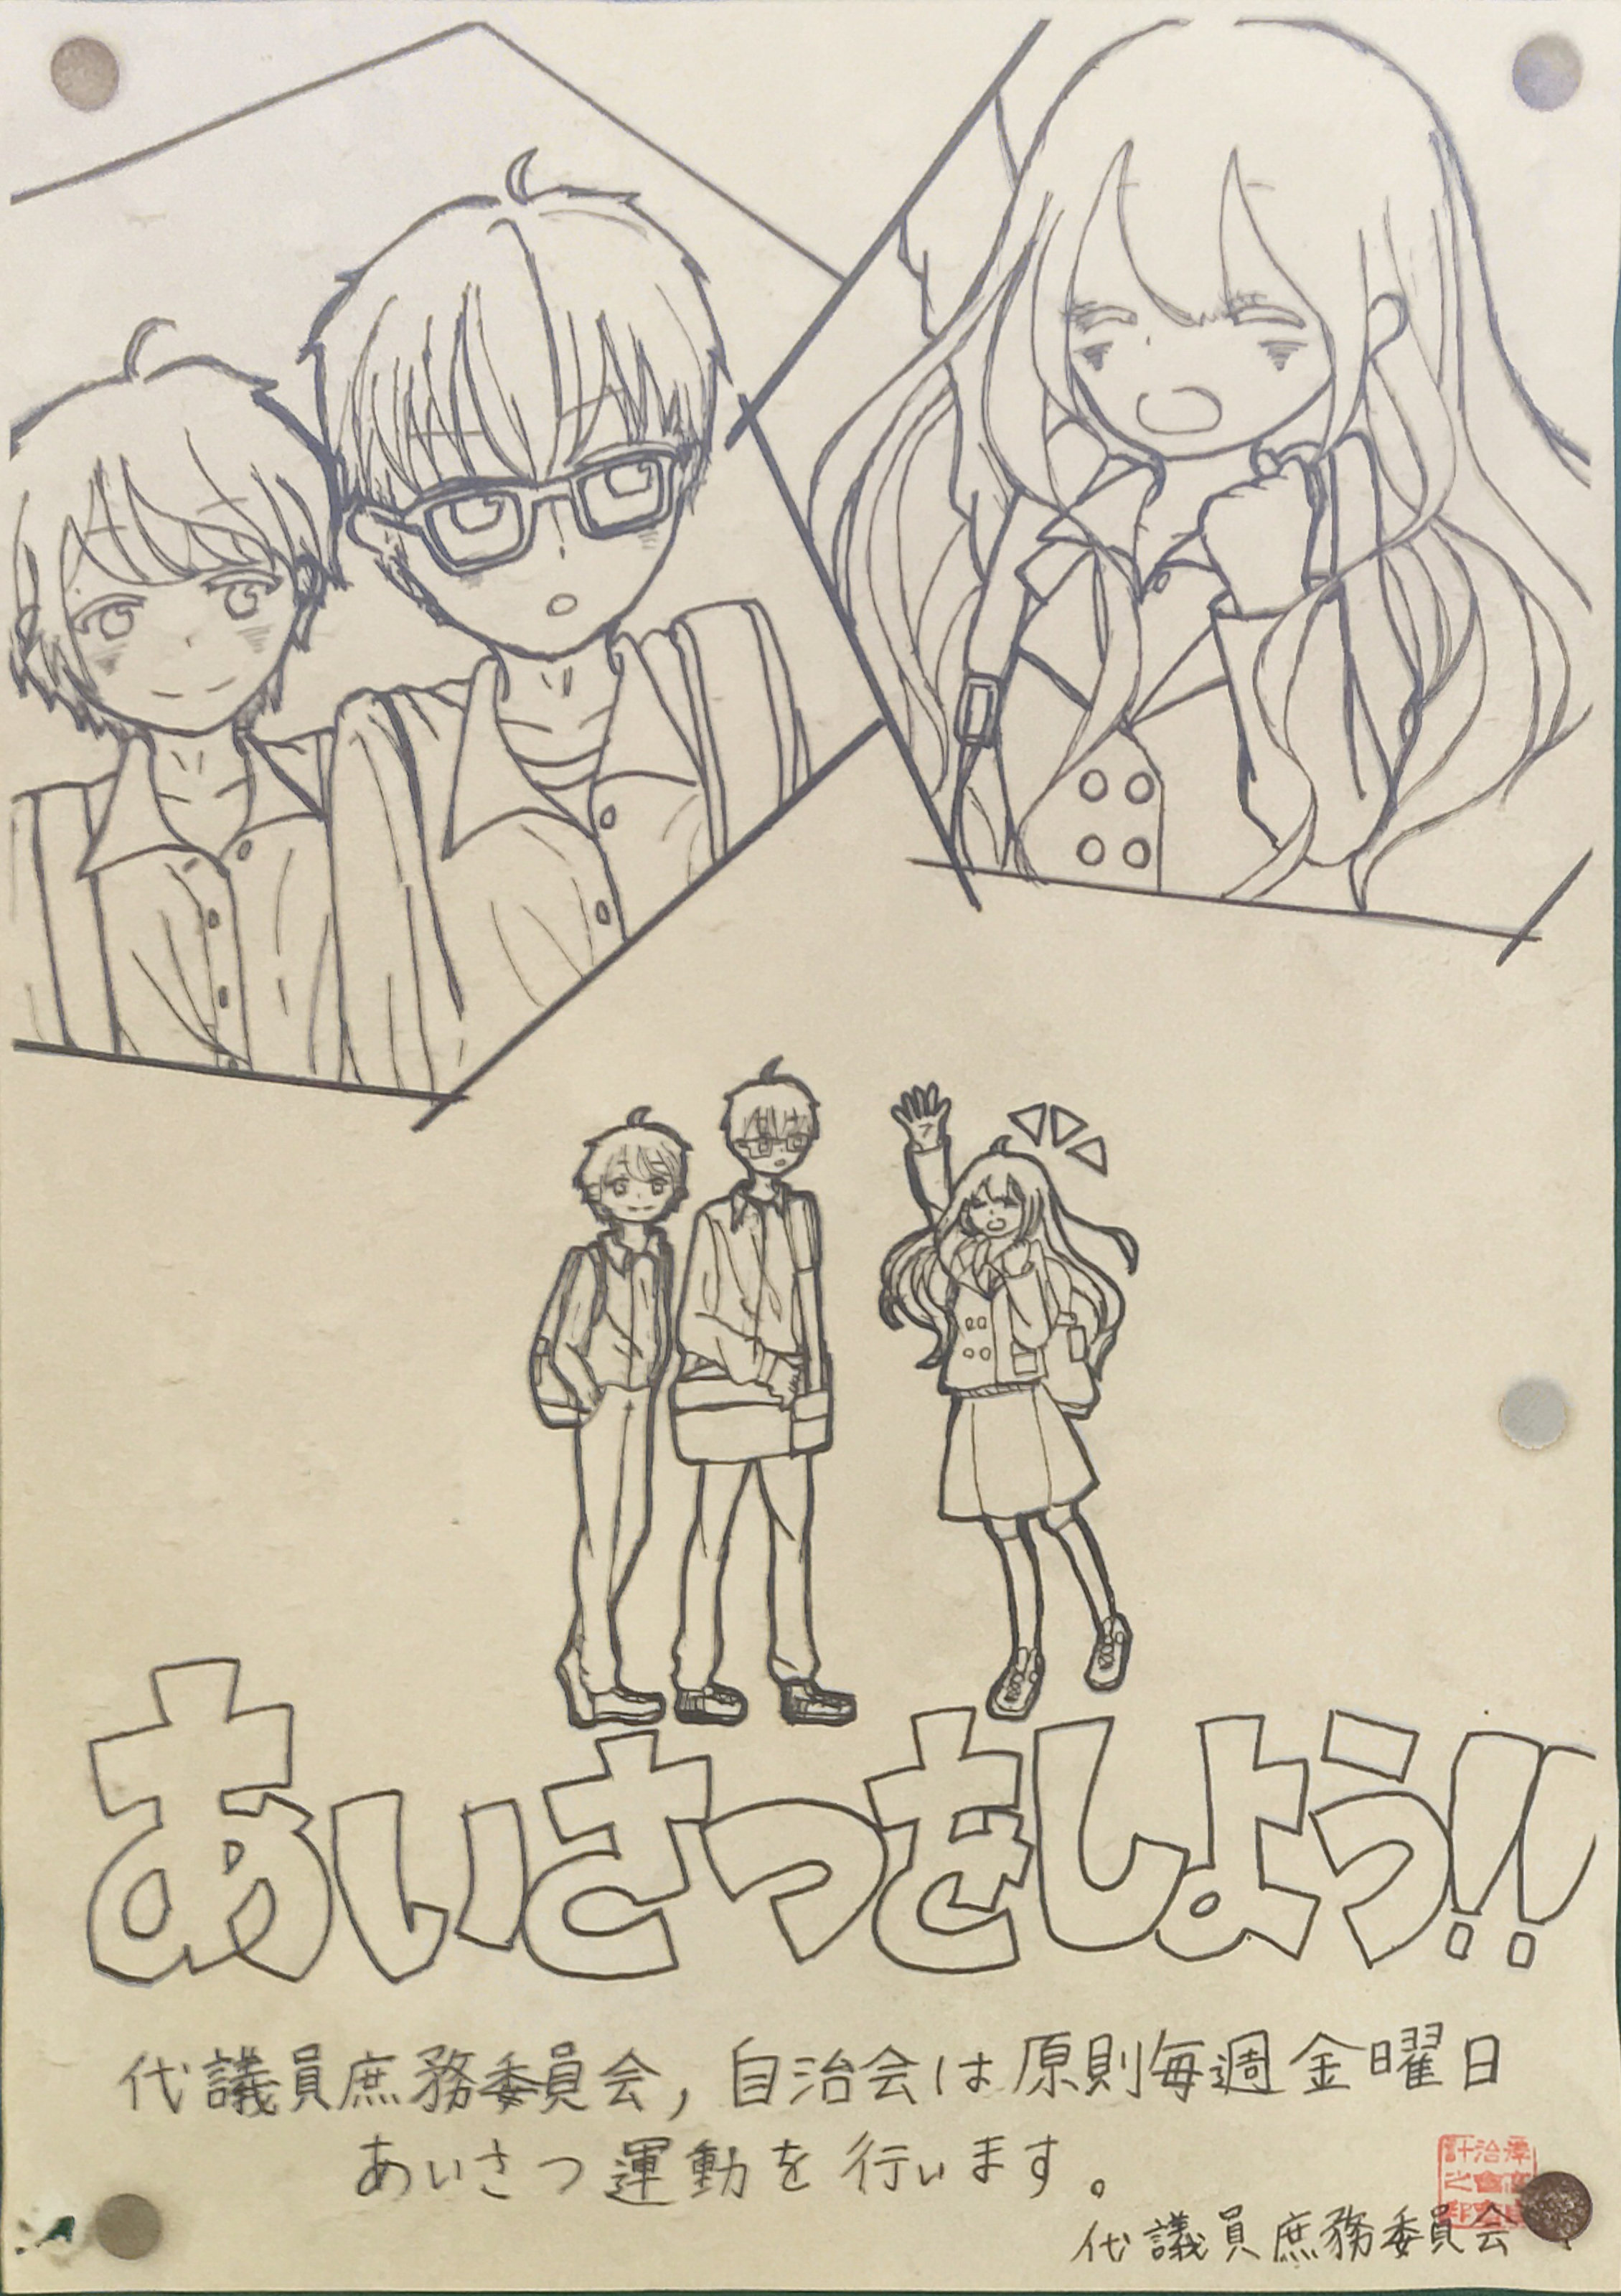 あいさつをしよう!!
代議員庶務委員会,自治会は原則毎週金曜日
あいさつ運動を行います。
代議員庶務委員会